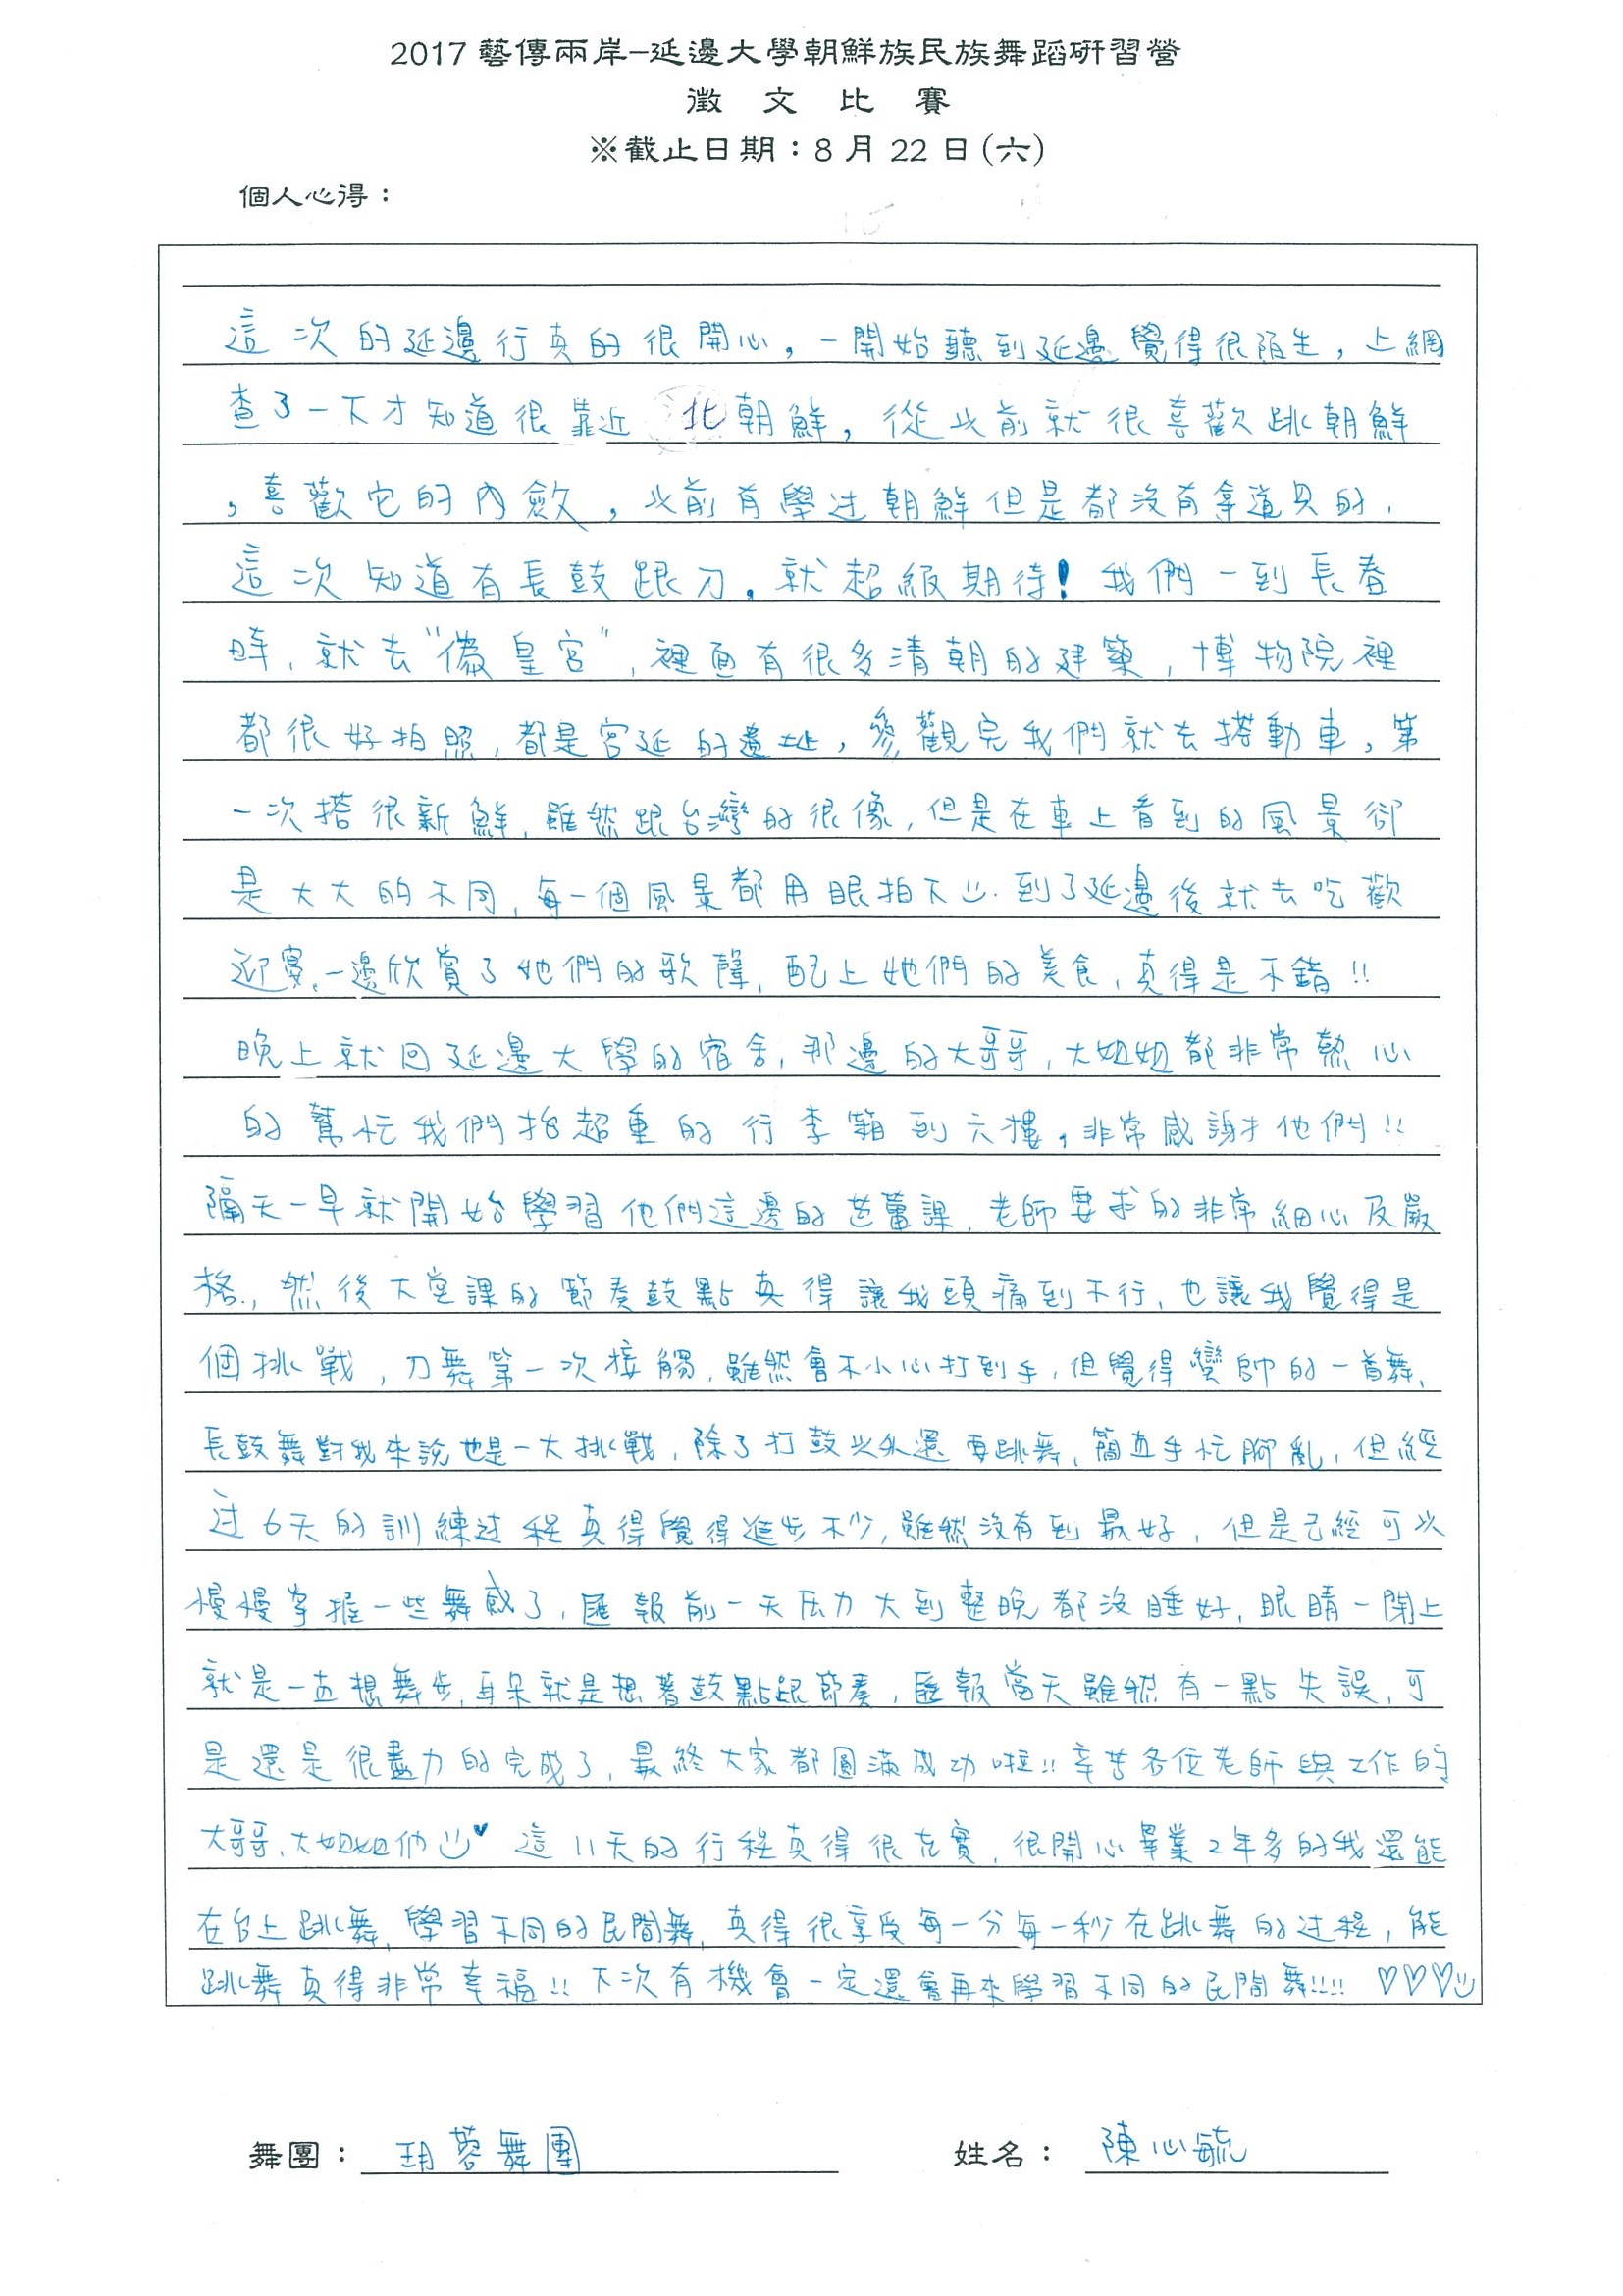 2017 藝傳兩岸–延邊大學朝鮮族民族舞蹈研習營
徵 文 比 賽
※截止日期：8 月 22 日(六)
個人心得：
這次的延邊行真的很開心，一開始聽到延邊覺得很陌生，上網
查了一下才知道很靠近北朝鮮，從以前就很喜歡跳朝鮮
，喜歡它的內斂，以前有學过朝鮮但是都沒有拿道具的，
這次知道有長鼓跟刀，就超級期待！我們一到長春
時，就去"偽皇宮"，裡面有很多清朝的建築，博物院裡
都很好拍照，都是宮廷的遺址，參觀完我們就去搭動車，第
一次搭很新鮮，雖然跟台灣的很像，但是在車上看到的風景卻
是大大的不同，每一個風景都用眼拍下:)．到了延邊後就去吃歡
迎宴，一邊欣賞了她們的歌聲，配上她們的美食，真得是不錯!!
晚上就回延邊大學的宿舍，那邊的大哥哥，大姐姐都非常熱心
的幫忙我們抬超重的行李箱到六樓，非常感謝他們!!
隔天一早就開始學習他們這邊的芭蕾課，老師要求的非常細心及嚴
格，然後大堂課的節奏鼓點真得讓我頭痛到不行，也讓我覺得是
個挑戰，刀舞第一次接觸，雖然會不小心打到手，但覺得蠻帥的一首舞，
長鼓舞對我來說也是一大挑戰，除了打鼓以外還要跳舞，簡直手忙腳亂，但經
过6天的訓練过程真得覺得進步不少，雖然沒有到最好，但是已經可以
慢慢掌握一些舞感了，匯報前一天压力大到整晚都沒睡好，眼睛一閉上
就是一直想舞步，耳朵就是想著鼓點跟節奏，匯報當天雖然有一點失誤，可
是還是很盡力的完成了，最終大家都圓滿成功啦!!辛苦各位老師與工作的
大哥哥、大姐姐們:)♥ 這11天的行程真得很充實，很開心畢業2年多的我還能
在台上跳舞，學習不同的民間舞，真得很享受每一分每一秒在跳舞的过程，能
跳舞真得非常幸福!!下次有機會一定還會再來學習不同的民間舞!!!! ♡♡♡:)
舞團：玥蓉舞團 姓名：陳心毓